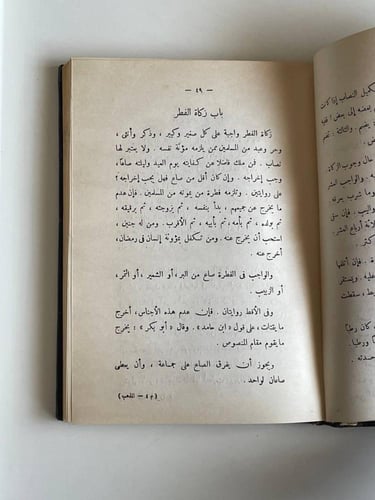 — ٤٩ —
باب زكاة الفطر
زكاة الفطر واجبة على كل صغير وكبير ، وذكر وأنثى ،
وحر وعبد من المسلمين ممن يلزمه مؤنة نفسه . ولا يعتبر لها
نصاب . فمن ملك فاضلا عن كفايته يوم العيد وليلته صاعا،
وجب إخراجه . وإن كان أقل من صاع فهل يجب إخراجه ؟
على روايتين . وتلزمه فطرة من يمونه من المسلمين . فإن عدم
ما يخرج عن جميعهم ، بدأ بنفسه ، ثم بزوجته ، ثم برقيقه ،
ثم بولده ، ثم بأمه ، ثم بأبيه ، ثم الأقرب . ومن له جنين ،
استحب أن يخرج عنه . ومن تكفل بمؤونة إنسان فى رمضان،
أخرج عنه .
والواجب فى الفطرة صاع من البر، أو الشعير ، أو التمر،
أو الزبيب .
وفى الأقط روايتان . فإن عدم هذه الأجناس، أخرج
مما يقتات ، على قول « ابن حامد » . وقال « أبو بكر » : يخرج
ما يقوم مقام المنصوص .
ويجوز أن يفرق الصاع على جماعة ، وأن يعطى
صاعان لواحد .
(م ٤ — المذهب)
تكميل النصاب إذا كان
حال وجوب الزكاة
والواجب العشر
فإن سقى
أرباع العشر
فإن أتلفها
ويستقر
سقطت
كان رطبا